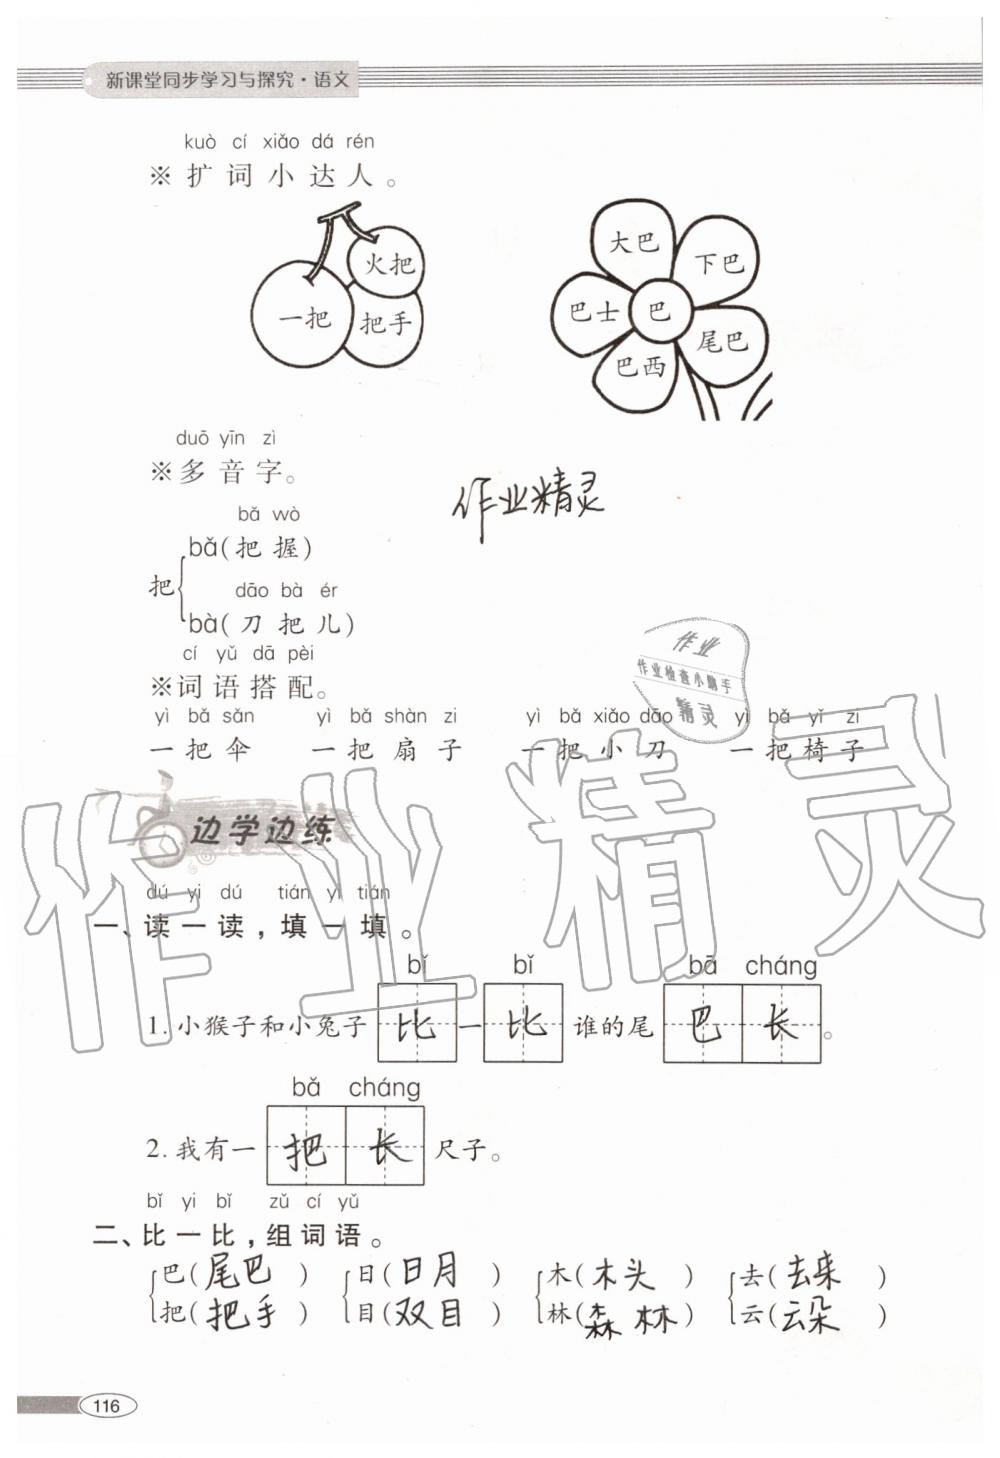 新课堂同步学习与探究·语文
kuò cí xiǎo dá rén
※扩词小达人。
火把
一把
把手
大巴
下巴
巴士
巴
尾巴
巴西
duō yīn zì
※多音字。
作业精灵
bǎ wò
bǎ(把握)
把
dāo bà ér
bà(刀把儿)
cí yǔ dā pèi
※词语搭配。
作业
作业检查小助手
精灵
yì bǎ sǎn yì bǎ shàn zi yì bǎ xiǎo dāo yì bǎ yǐ zi
一把伞 一把扇子 一把小刀 一把椅子
作业精灵
边学边练
dú yi dú tián yi tián
一、读一读，填一填。
bǐ bǐ bā cháng
1.小猴子和小兔子比一比谁的尾巴长。
bǎ cháng
2.我有一把长尺子。
bǐ yi bǐ zǔ cí yǔ
二、比一比，组词语。
巴(尾巴) 日(日月) 木(木头) 去(去来)
把(把手) 目(双目) 林(森林) 云(云朵)
116